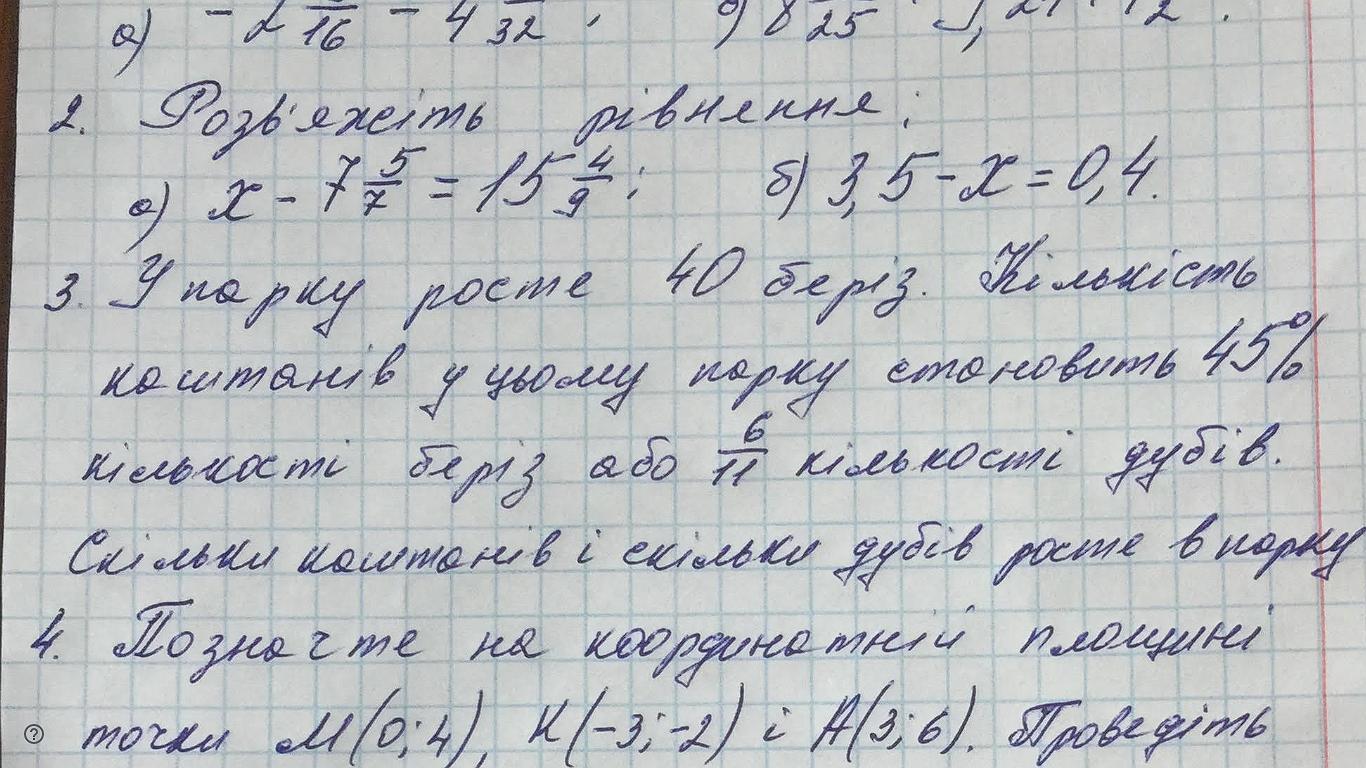 а) 16 - 4 32 ; 25
2. Розв'яжіть рівняння:
а) x - 7 5/7 = 15 4/9 ; б) 3,5 - x = 0,4.
3. У парку росте 40 беріз. Кількість
каштанів у цьому парку становить 45%
кількості беріз або 6/11 кількості дубів.
Скільки каштанів і скільки дубів росте в парку
4. Позначте на координатній площині
точки М(0; 4), К(-3; -2) і А(3; 6). Проведіть